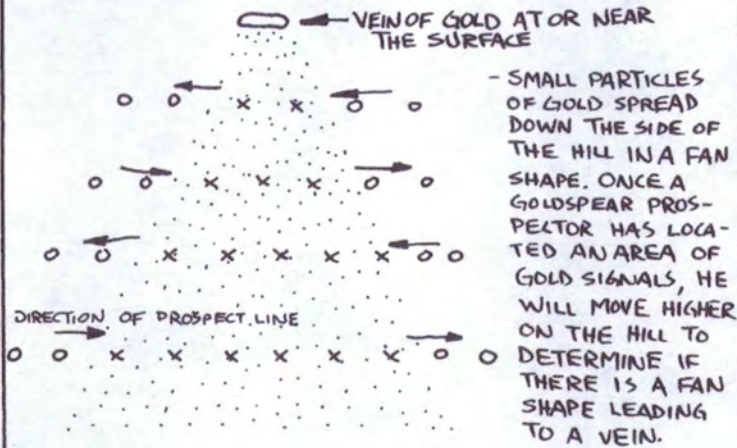 VEIN OF GOLD AT OR NEAR
THE SURFACE
- SMALL PARTICLES
OF GOLD SPREAD
DOWN THE SIDE OF
THE HILL IN A FAN
SHAPE. ONCE A
GOLDSPEAR PROS-
PECTOR HAS LOCA-
TED AN AREA OF
GOLD SIGNALS, HE
WILL MOVE HIGHER
ON THE HILL TO
DETERMINE IF
THERE IS A FAN
SHAPE LEADING
TO A VEIN.
DIRECTION OF PROSPECT LINE